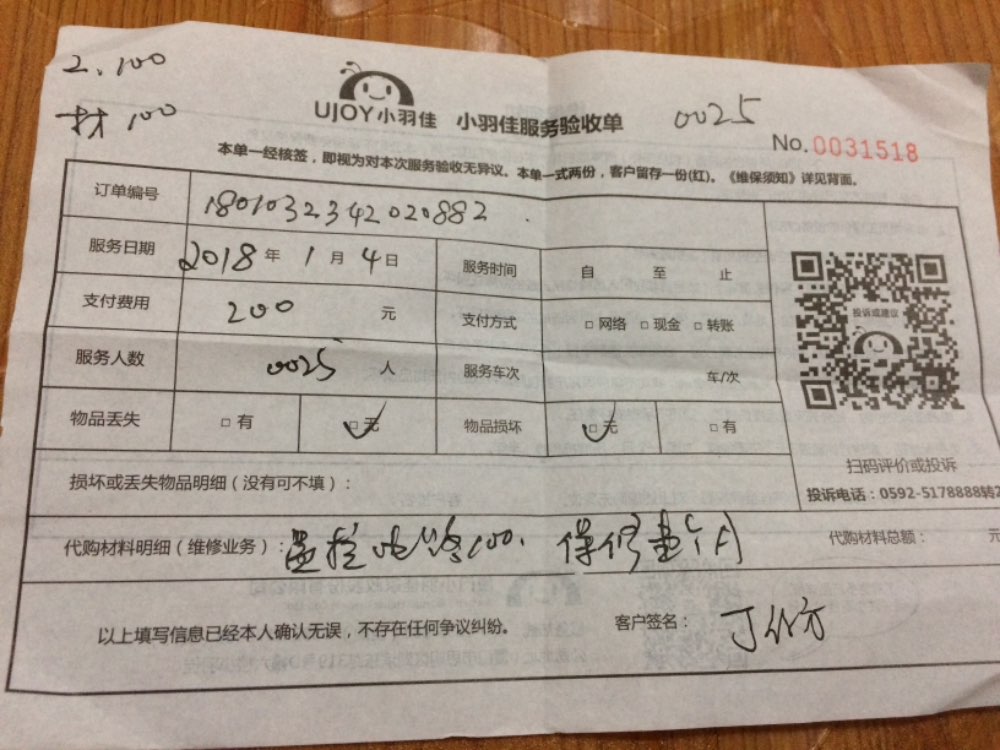 工 . 100
材 100
UJOY小羽佳 小羽佳服务验收单 0025
No.0031518
本单一经核签，即视为对本次服务验收无异议。本单一式两份，客户留存一份(红)。《维保须知》详见背面。
订单编号 1801032342020882
服务日期 2018年 1月 4日 服务时间 自 至 止
支付费用 200 元 支付方式 □网络 □现金 □转账
投诉或建议
服务人数 0025 人 服务车次 车/次
物品丢失 □有 □无 物品损坏 □无 □有
扫码评价或投诉
损坏或丢失物品明细（没有可不填）：
投诉电话：0592-5178888转2
代购材料明细（维修业务）：温控 100. 保修 个月 代购材料总额： 元
以上填写信息已经本人确认无误，不存在任何争议纠纷。 客户签名：丁